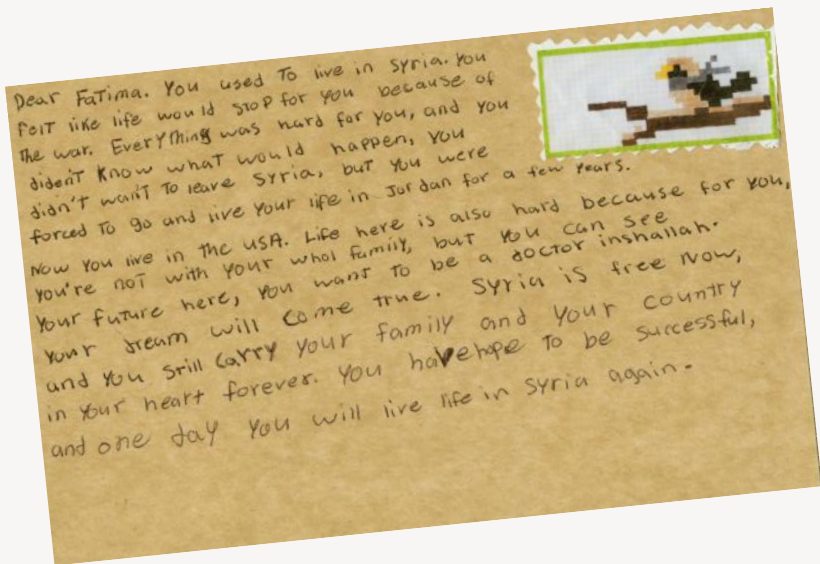 Dear Fatima. You used To live in Syria. You
felt like life would stop for you because of
the war. Everything was hard for you, and you
dident know what would happen, you
didn't want To leave Syria, but you were
forced To go and live your life in Jordan for a few years.
Now you live in the USA. Life here is also hard because for you,
you're not with your whol family, but you can see
your future here, you want to be a doctor inshallah.
your dream will come true. Syria is free now,
and you still carry your family and your country
in your heart forever. You have hope To be successful,
and one day you will live life in Syria again.